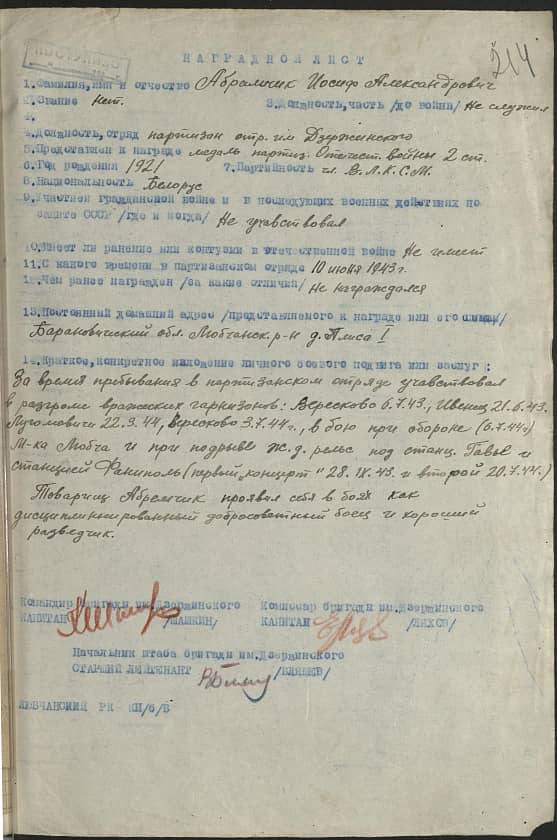 214
НАГРАДНОЙ ЛИСТ
1.Фамилия,имя и отчество Абрамчик Иосиф Александрович
2.Звание Нет. 3.Должность,часть /до война/ Не служил
4.Должность,отряд партизан отр. им Дзержинского
5.Представлен к награде медаль партиз. Отечест. войны 2 ст.
6.Год рождения 1921 7.Партийность чл. В.Л.К.С.М.
8.Национальность Белорус
9.Участием гражданской войне и в последующих военных действиях по
защите СССР /где и когда/ Не учавствовал
10.Имеет ли ранение или контузии в отечественной войне Не имеет
11.С какого времени в партизанском отряде 10 июня 1943 г.
12.Чем ранее награжден /за какие отличия/ Не награждался
13.Постоянный домашний адрес /представляемого к награде или его
Барановичский обл. Любчанск. р-н д.
14.Краткое,конкретное изложение личного боевого подвига или заслуг :
За время пребывания в партизанском отряде учавствовал
в разгроме вражеских гарнизонов: Вересково 6.7.43., Ивенец 21.6.43.
22.3.44, вересково 3.7.44 г., в бою при обороне (6.7.44 г)
М-ка Любча и при подрыве ж.д. рельс под станц. Гавье и
станцией Фаниполь (первый "концерт" 28.IX.43. и второй 20.7.44.)
Товарищ Абрамчик проявил себя в боях как
дисциплинированный добросовестный боец и хороший
разведчик.
Командир бригады им.Дзержинского Комиссар бригады им.Дзержинского
КАПИТАН /ШАШКИН/ КАПИТАН /ЛЯХОВ/
Начальник штаба бригады им.Дзержинского
СТАРШИЙ ЛЕЙТЕНАНТ
ЛЮБЧАНСКИЙ РК КП/б/Б